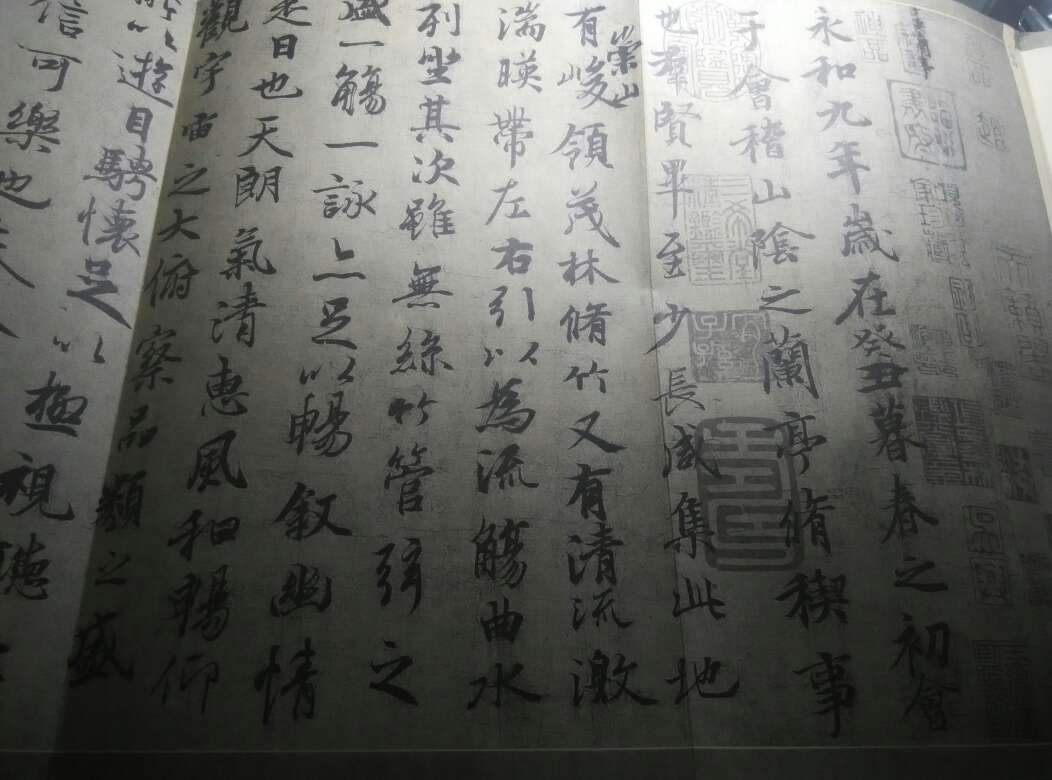 永和九年歲在癸丑暮春之初會
于會稽山陰之蘭亭脩稧事
也羣賢畢至少長咸集此地
有崇山峻領茂林脩竹又有清流激
湍暎帶左右引以為流觴曲水
列坐其次雖無絲竹管弦之
盛一觴一詠亦足以暢敘幽情
是日也天朗氣清惠風和暢仰
觀宇宙之大俯察品類之盛
所以遊目騁懷足以極視聽
信可樂也夫人